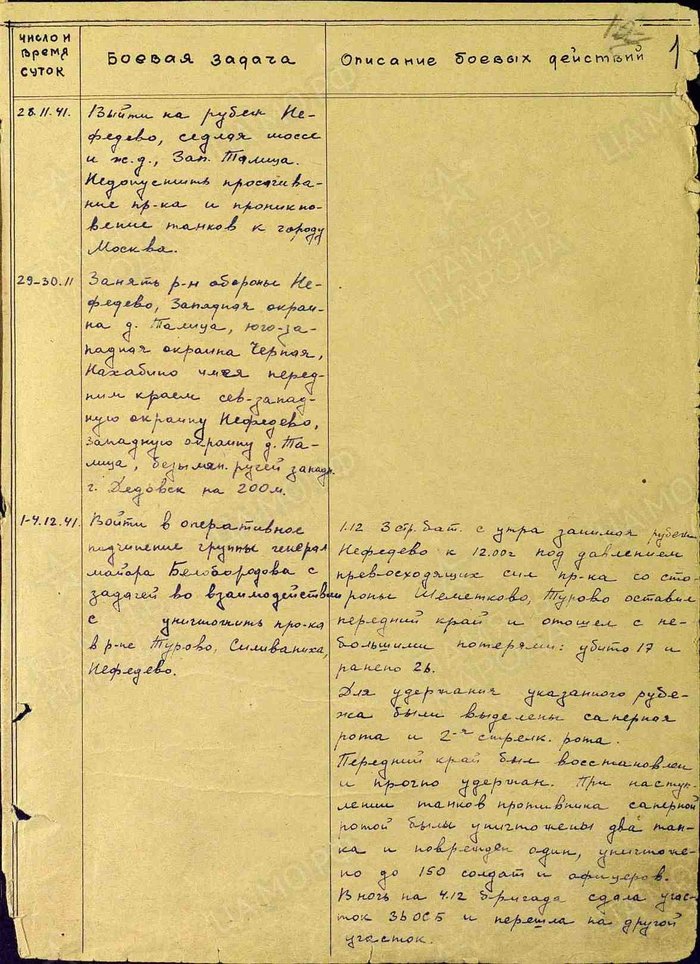 1
Число и
время
суток
Боевая задача
Описание боевых действий
28.11.41.
Выйти на рубеж Не-
федево, седлая шоссе
и ж.д., Зап. Талица.
Недопустить просачива-
ние пр-ка и проникно-
вение танков к городу
Москва.
29-30.11
Занять р-н обороны Не-
федево, Западная окраи-
на д. Талица, юго-за-
падная окраина Черная,
Нахабино имея перед-
ним краем сев-запад-
ную окраину Нефедево,
западную окраину д. Та-
лица, безымян. ручей западн.
г. Дедовск на 200м.
1-4.12.41.
Войти в оперативное
подчинение группы генерал
майора Белобородова с
задачей во взаимодействии
с уничтожить пр-ка
в р-не Турово, Селиваниха,
Нефедево.
1.12 3 стр. бат. с утра занимая рубеж
Нефедево к 12.00г под давлением
превосходящих сил пр-ка со сто-
роны Шеметково, Турово оставил
передний край и отошел с не-
большими потерями: убито 17 и
ранено 26.
Для удержания указанного рубе-
жа были выделены саперная
рота и 2-я стрелк. рота.
Передний край был восстановлен
и прочно удержан. При наступ-
лении танков противника саперной
ротой были уничтожены два тан-
ка и поврежден один, уничтоже-
но до 150 солдат и офицеров.
В ночь на 4.12 бригада сдала учас-
ток 36 ОСБ и перешла на другой
участок.